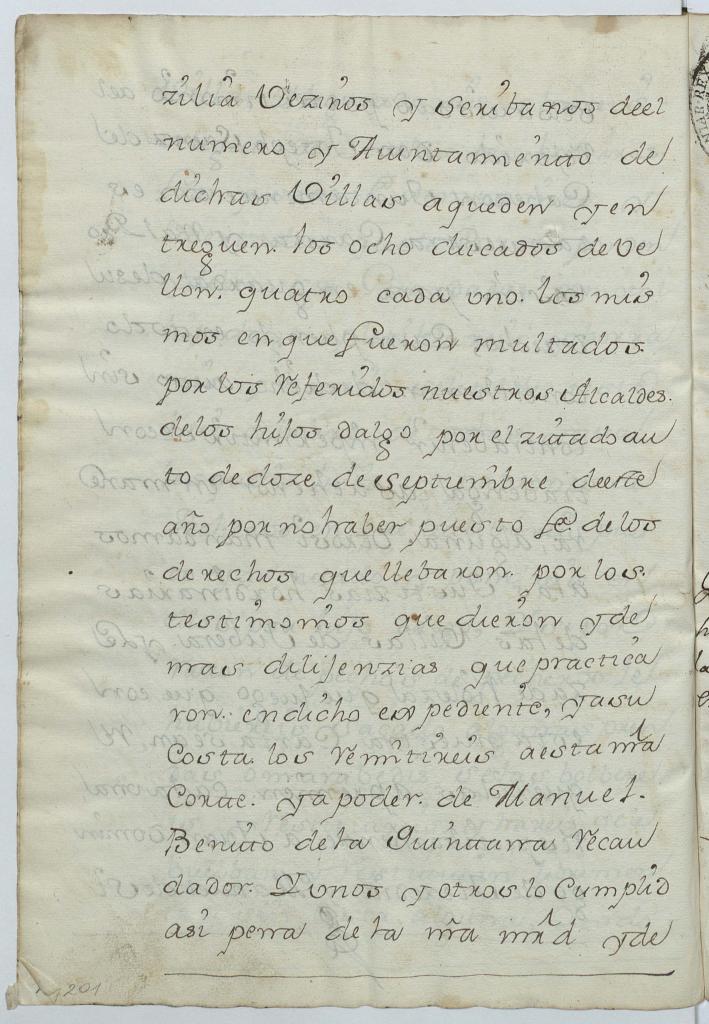 zilia Vezinos y scribanos deel
numero y Aiuntamiento de
dichas Villas aqueden y en
treguen los ocho ducados de Ve
llon. quatro cada uno. los mis
mos en que fueron multados
por los referidos nuestros Alcaldes.
de los hijos dalgo por el zitado au
to de doze de septiembre deeste
año por no haber puesto fe. de los
derechos que llebaron. por los
testimonios que dieron y de
mas dilijenzias que practica
ron. en dicho expediente, y a su
Costa los remitireis a esta nrâ
Corte. y a poder. de Manuel.
Benito de la Quintana recau
dador. Y unos y otros lo Cumplid
asi pena de la nrâ mrd y de
1201